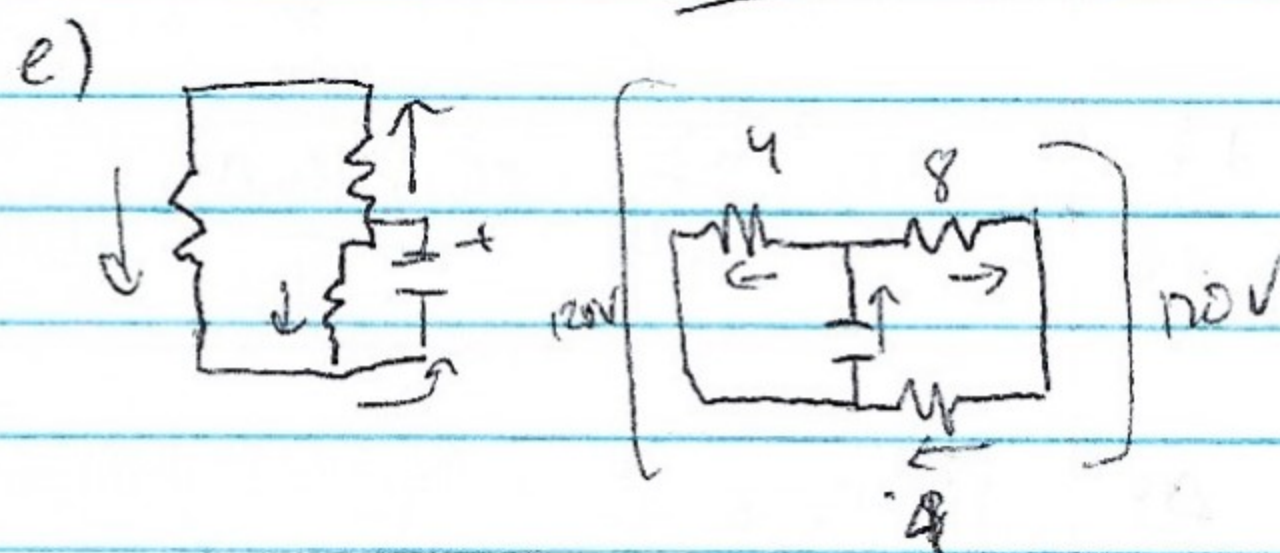 e)
+
4
8
120V
120V